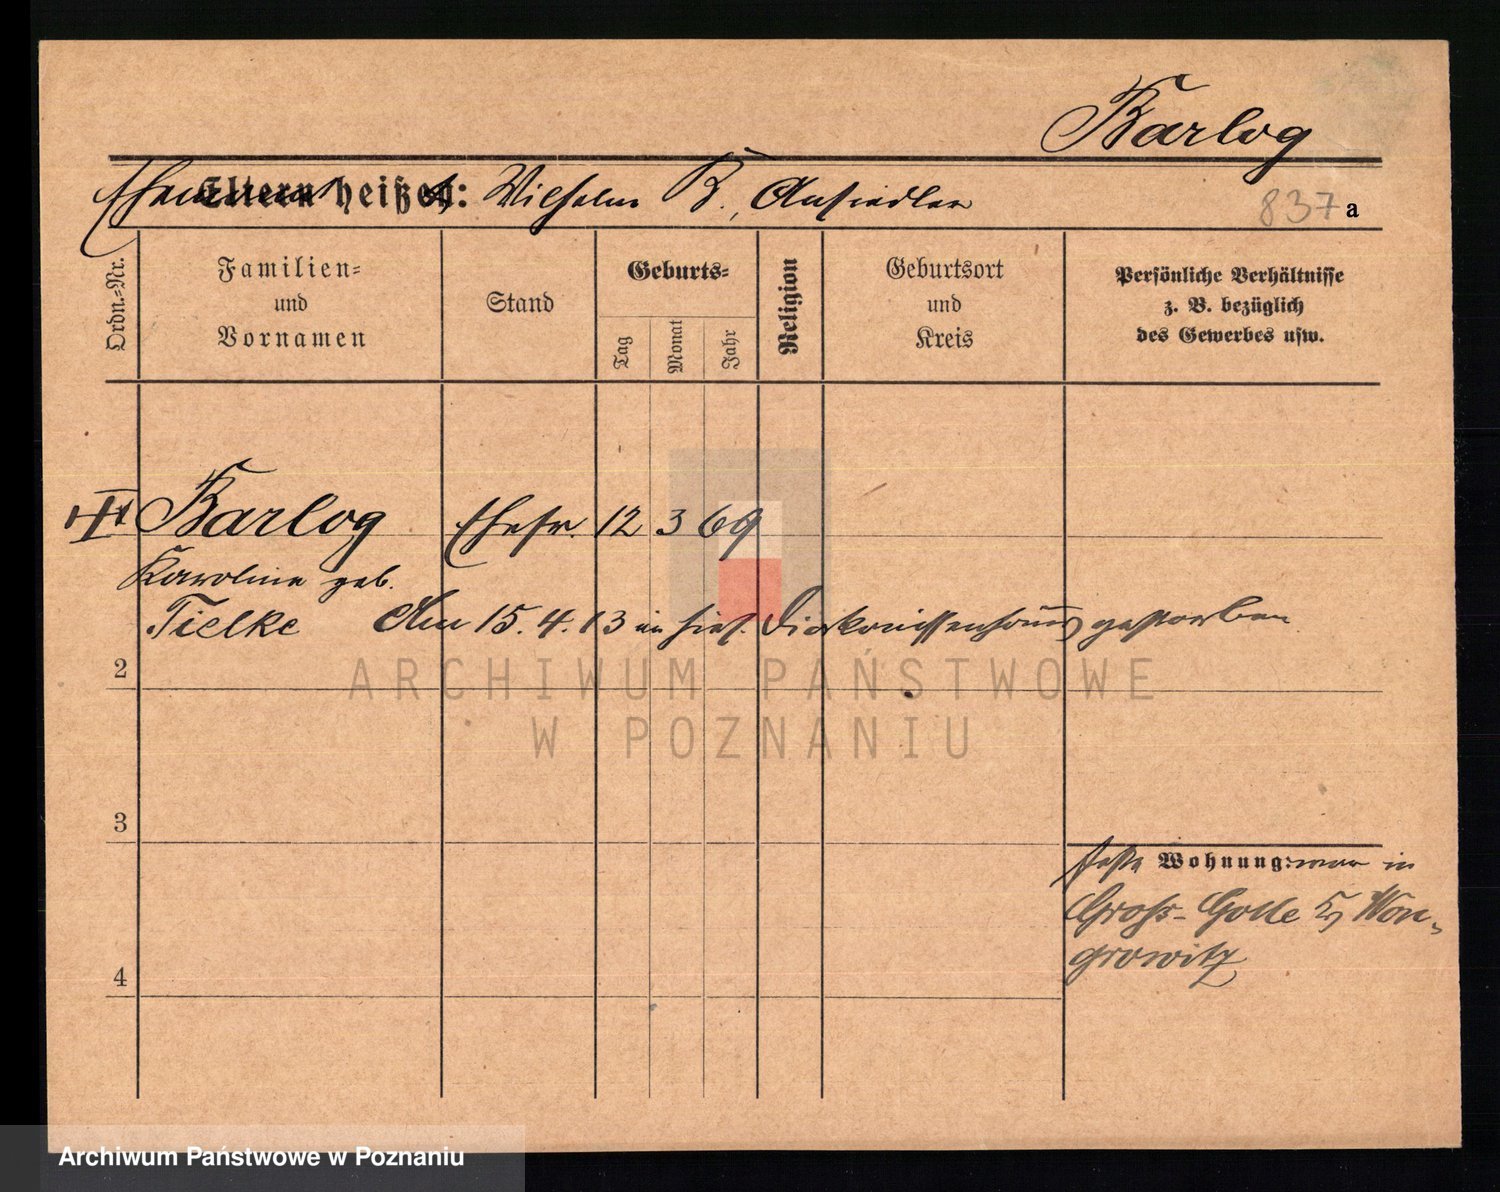 Barlog
Ehemann heißt: Wilhelm B., Ansiedler
837 a
Ordn.=Nr.
Familien=
und
Vornamen
Stand
Geburts=
Tag
Monat
Jahr
Religion
Geburtsort
und
Kreis
Persönliche Verhältnisse
z. B. bezüglich
des Gewerbes usw.
Barlog Ehefr. 12 3 69
Karoline geb.
Tielke Am 15.4.13 in hies. Diakonissenhaus gestorben
2
ARCHIWUM PAŃSTWOWE
W POZNANIU
3
feste Wohnung: war in
Groß-Golle Kr. Won-
growitz
4
Archiwum Państwowe w Poznaniu